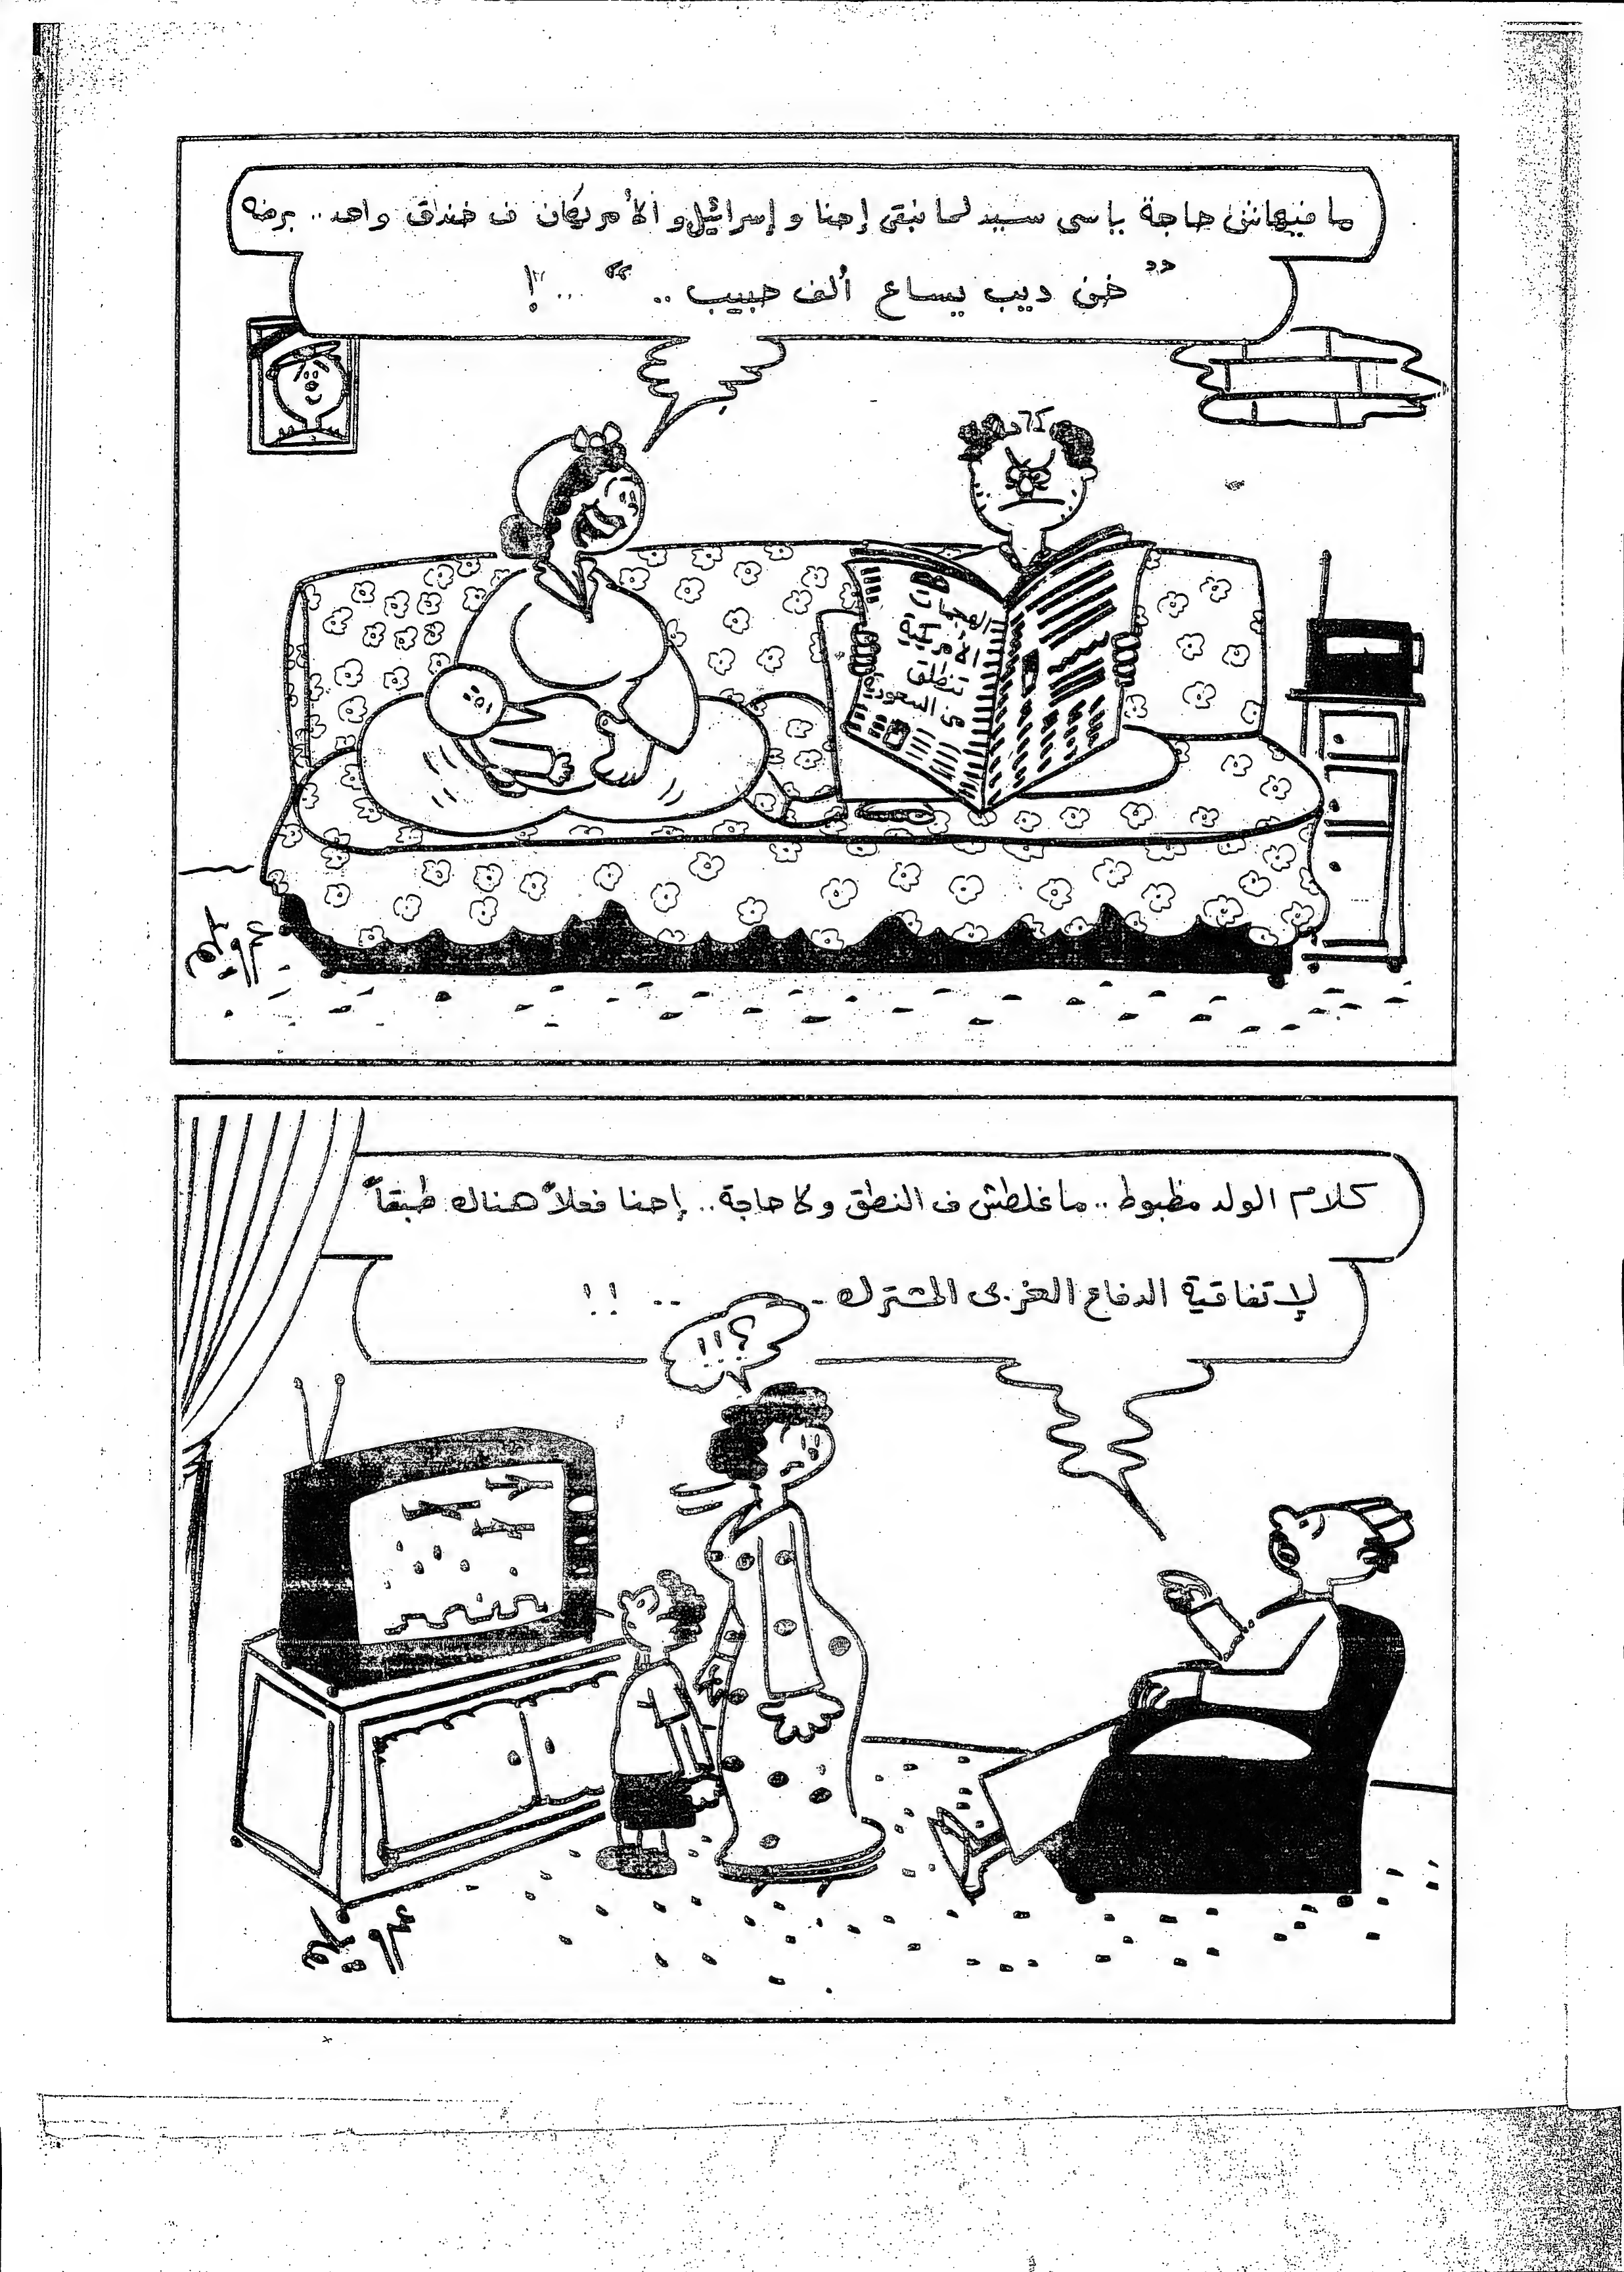 ما فيهاش حاجة ياسى سيد لما نبقى إحنا وإسرائيل والأمريكان ف خندق واحد.. برضه
" خن ديب يساع ألف حبيب .. " ... !
الهجمات
الأمريكية
تنطلق
من السعودية
كلام الولد مظبوط .. ماغلطش ف النطق ولا حاجة .. إحنا فعلاً هناك طبقاً
لإتفاقية الدفاع الغربى المشترك - .. !!
؟!!